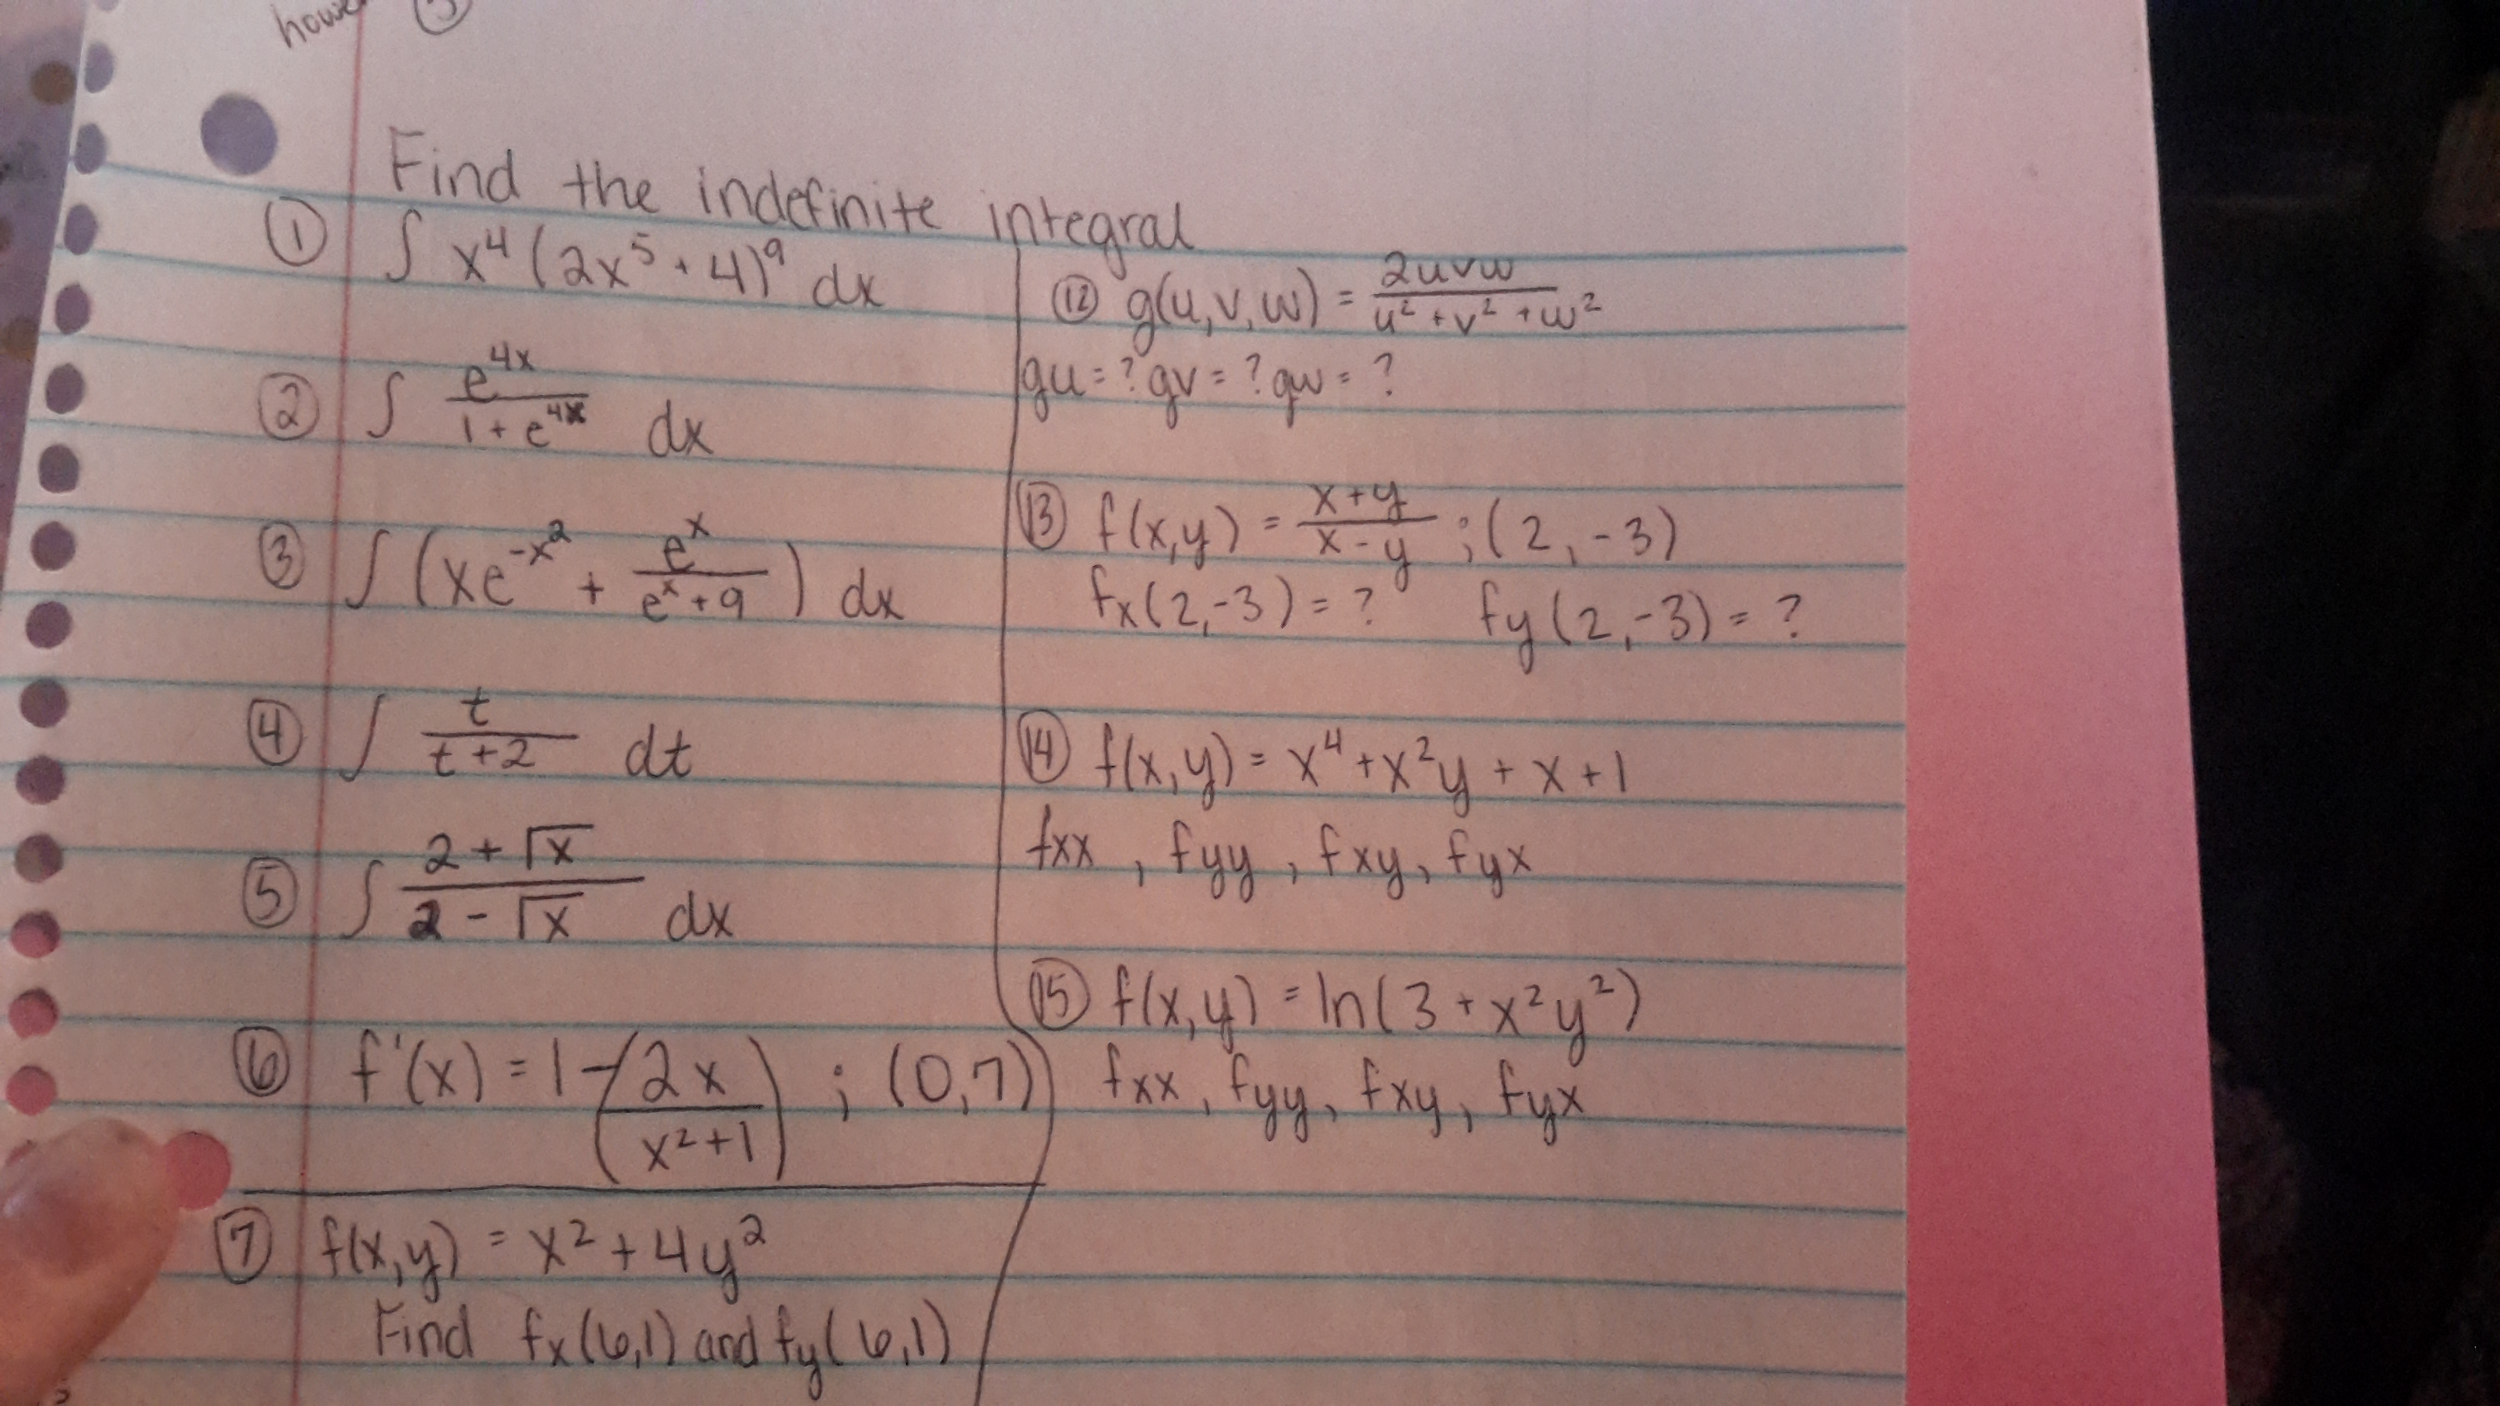 Find the indefinite integral
① ∫ x⁴(2x⁵+4)⁹ dx
② ∫ e^(4x)/(1+e^(4x)) dx
③ ∫ (xe^(-x²) + e^x/(e^x+9)) dx
④ ∫ t/(t+2) dt
⑤ ∫ (2+√x)/(2-√x) dx
⑥ f'(x) = 1-(2x/(x²+1)) ; (0,7)
⑦ f(x,y) = x²+4y²
Find fx(6,1) and fy(6,1)
⑫ g(u,v,w) = 2uvw/(u²+v²+w²)
gu=? gv=? gw=?
⑬ f(x,y) = (x+y)/(x-y) ; (2,-3)
fx(2,-3)=? fy(2,-3)=?
⑭ f(x,y)= x⁴+x²y+x+1
fxx, fyy, fxy, fyx
⑮ f(x,y) = ln(3+x²y²)
fxx, fyy, fxy, fyx